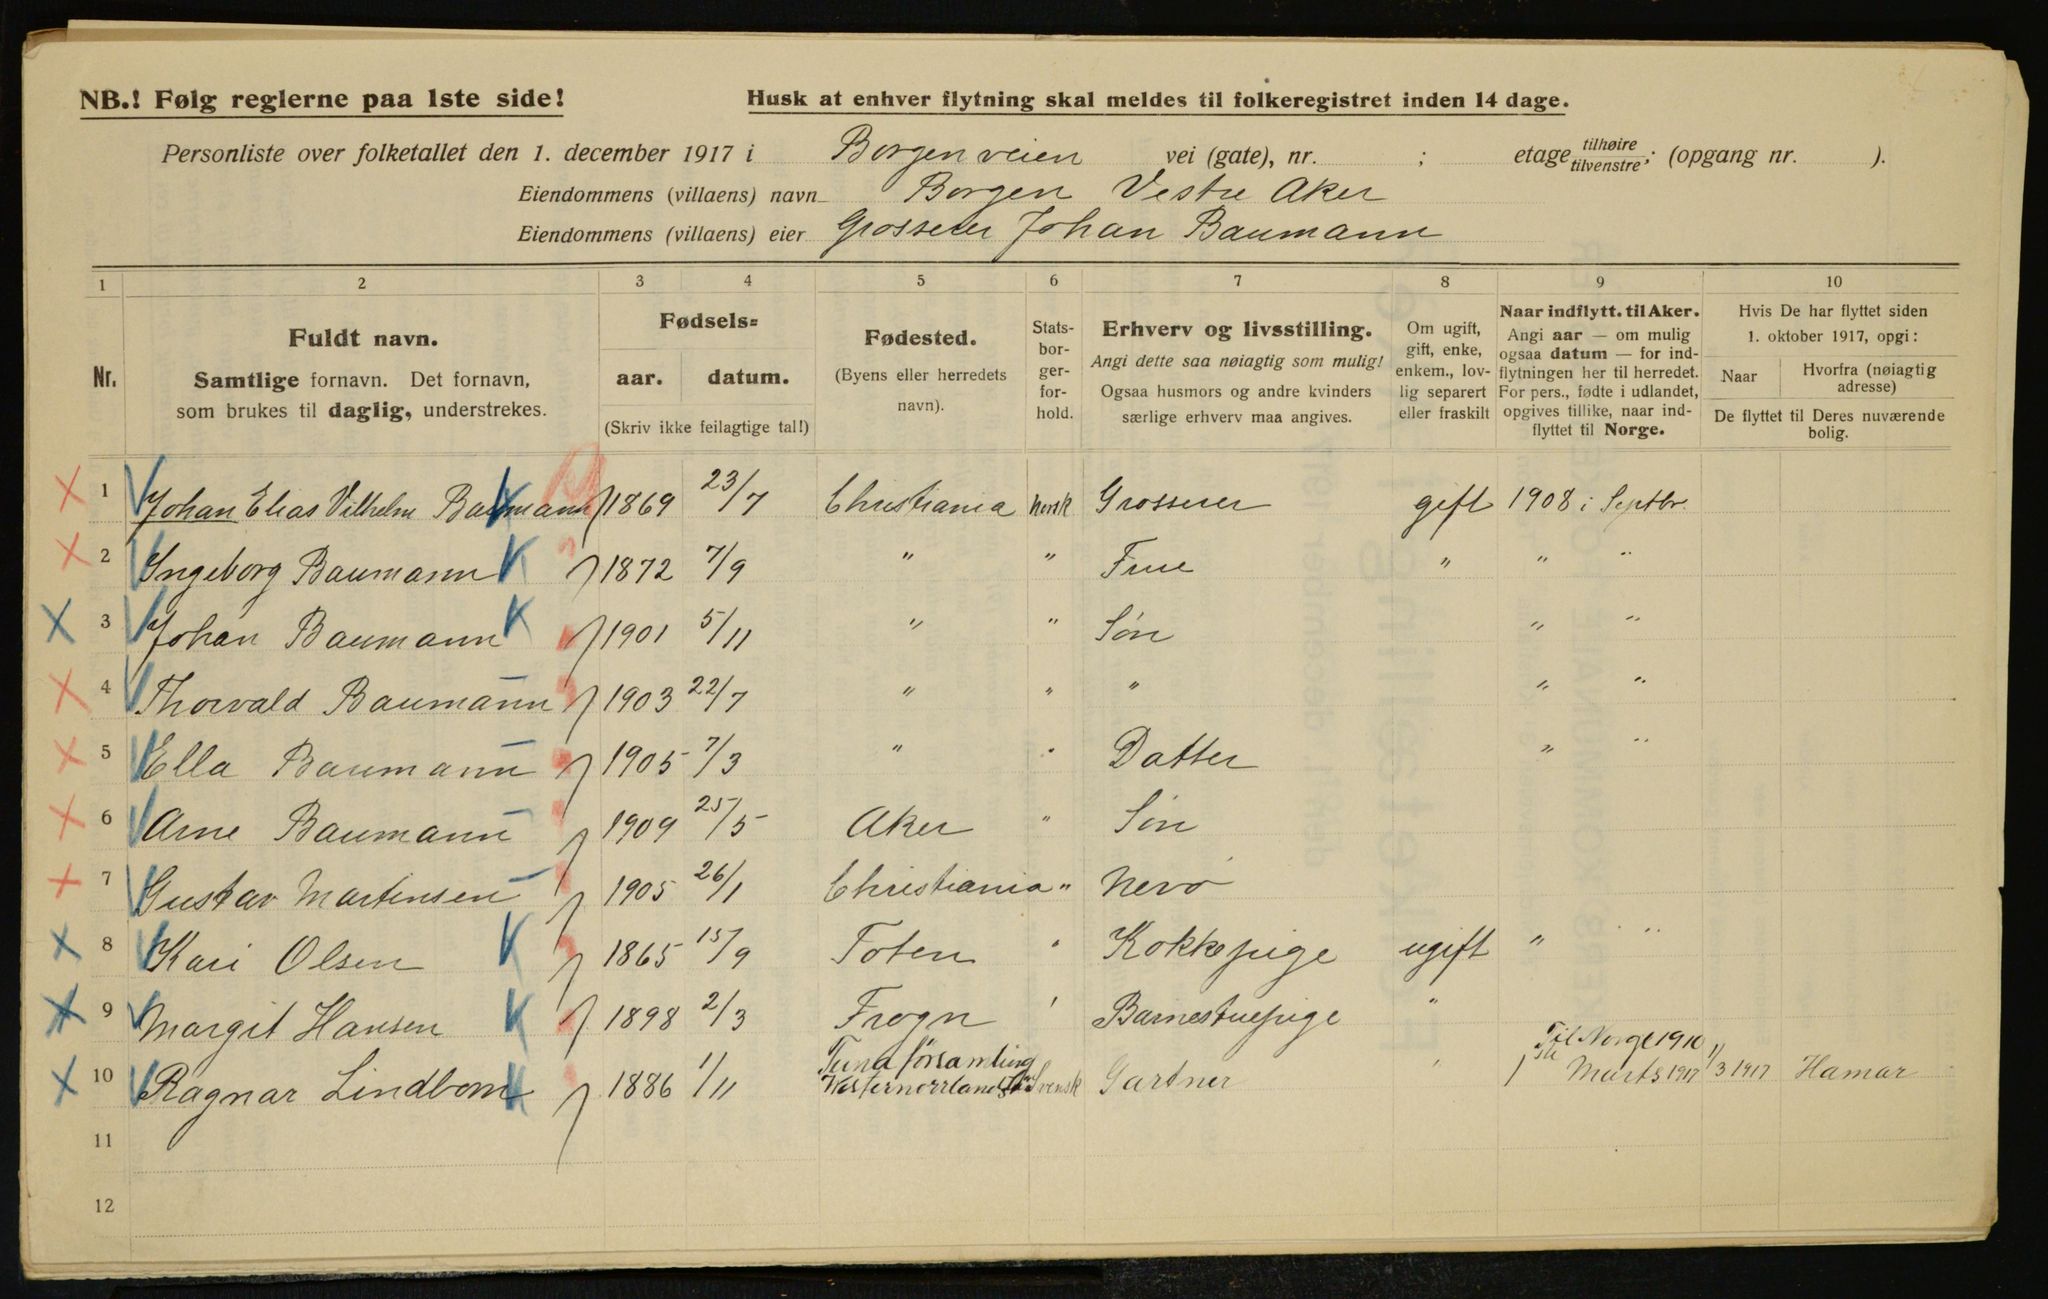 NB.! Følg reglerne paa 1ste side!
Husk at enhver flytning skal meldes til folkeregistret inden 14 dage.
Personliste over folketallet den 1. december 1917 i Borgenveien vei (gate), nr. ; etage tilhøire tilvenstre; (opgang nr. ).
Eiendommens (villaens) navn Borgen Vestre Aker
Eiendommens (villaens) eier Grosserer Johan Baumann
1 2 3 4 5 6 7 8 9 10
Nr.
Fuldt navn.
Samtlige fornavn. Det fornavn,
som brukes til daglig, understrekes.
Fødsels=
aar. datum.
(Skriv ikke feilagtige tal!)
Fødested.
(Byens eller herredets
navn).
Stats-
bor-
ger-
for-
hold.
Erhverv og livsstilling.
Angi dette saa nøiagtig som mulig!
Ogsaa husmors og andre kvinders
særlige erhverv maa angives.
Om ugift,
gift, enke,
enkem., lov-
lig separert
eller fraskilt
Naar indflytt. til Aker.
Angi aar — om mulig
ogsaa datum — for ind-
flytningen her til herredet.
For pers., fødte i udlandet,
opgives tillike, naar ind-
flyttet til Norge.
Hvis De har flyttet siden
1. oktober 1917, opgi:
Naar
Hvorfra (nøiagtig
adresse)
De flyttet til Deres nuværende
bolig.
1 Johan Elias Vilhelm Baumann 1869 23/7 Christiania norsk Grosserer gift 1908 i Septbr.
2 Ingeborg Baumann 1872 7/9 " " Frue " " "
3 Johan Baumann 1901 5/11 " " Søn " "
4 Thorvald Baumann 1903 22/7 " " " " "
5 Ella Baumann 1905 7/3 " " Datter " "
6 Arne Baumann 1909 25/5 Aker " Søn
7 Gustav Martinsen 1905 26/1 Christiania " Nevø
8 Kari Olsen 1865 15/9 Toten " Kokkepige ugift " "
9 Margit Hansen 1898 2/3 Frogn " Barnestuepige "
Tuna församling Til Norge 1910
10 Ragnar Lindbom 1886 1/11 Vesternorrlands Svensk Gartner " 1ste Marts 1917 1/3 1917 Hamar
11
12